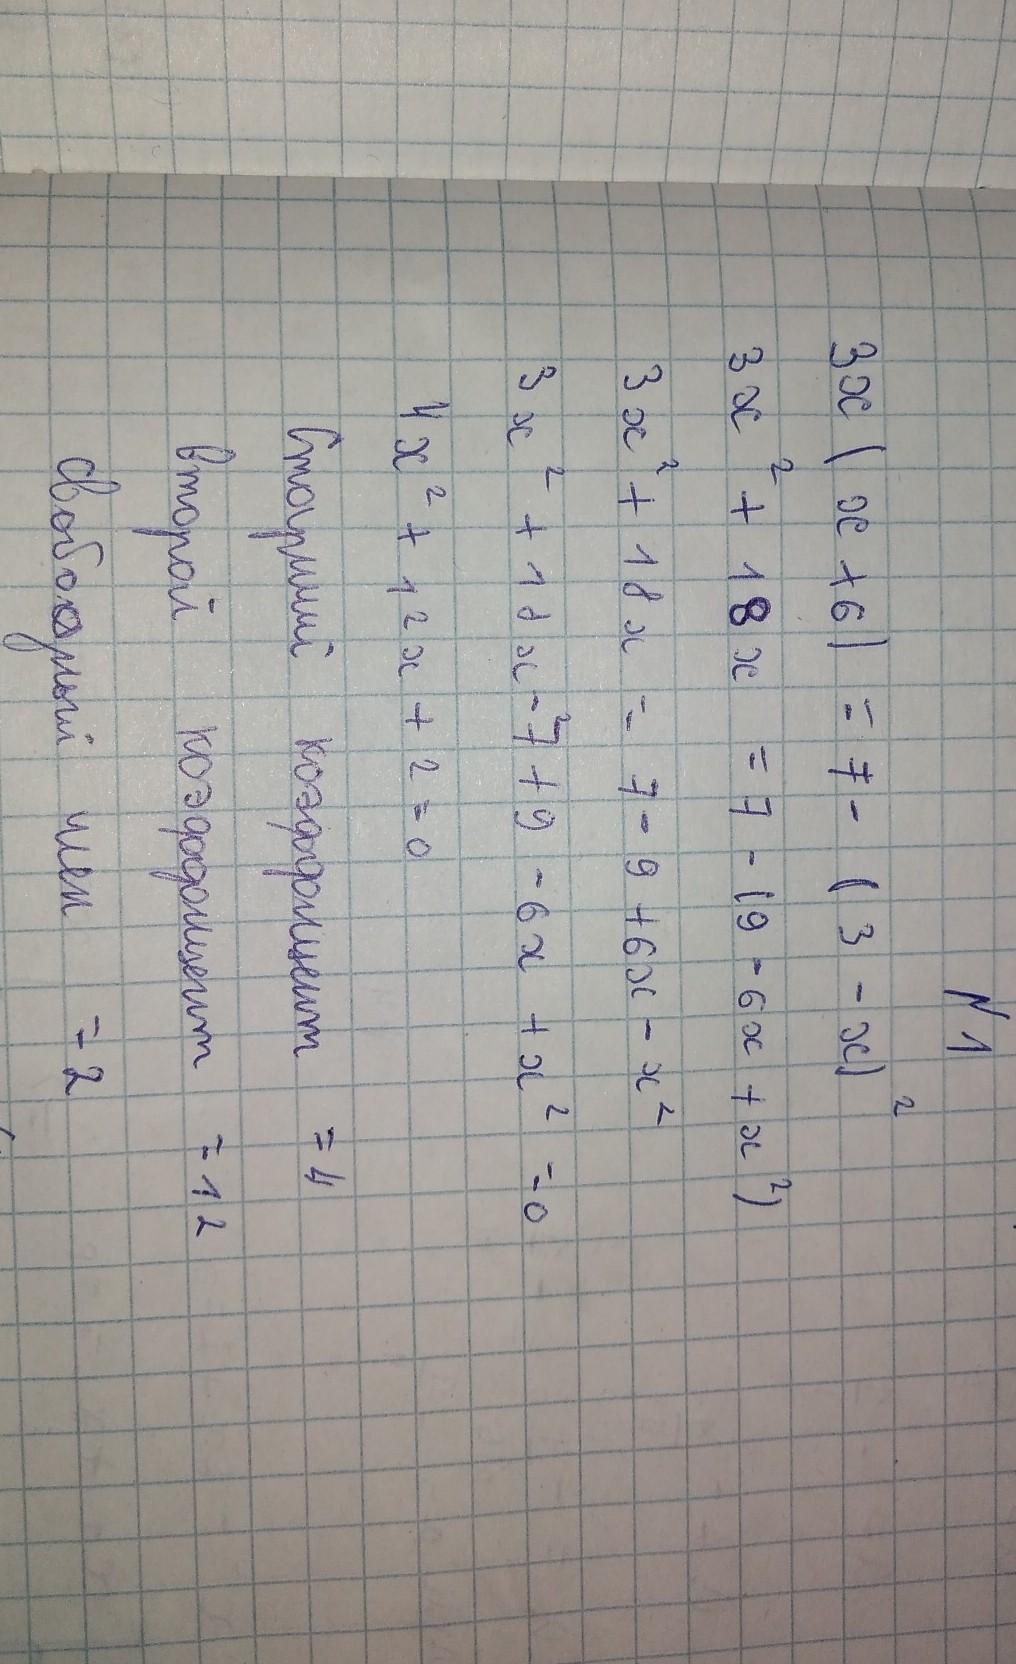 N 1
3x ( x + 6 ) = 7 - ( 3 - x )²
3x² + 18x = 7 - (9 - 6x + x²)
3x² + 18x = 7 - 9 + 6x - x²
3x² + 18x - 7 + 9 - 6x + x² = 0
4x² + 12x + 2 = 0
Старший коэффициент = 4
второй коэффициент = 12
свободный член = 2